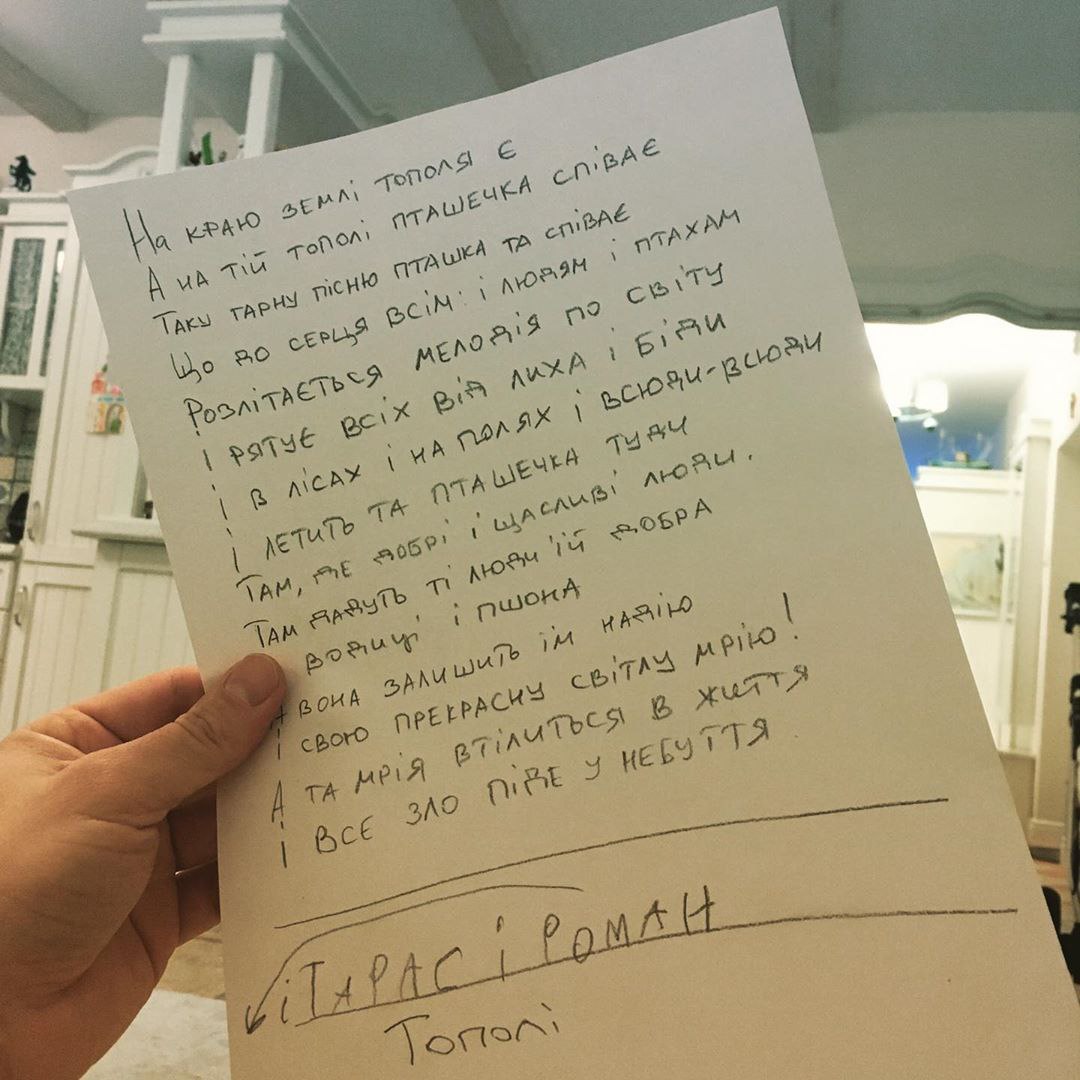 На краю землі тополя є
А на тій тополі пташечка співає
Таку гарну пісню пташка та співає
Що до серця всім: і людям і птахам
Розлітається мелодія по світу
І рятує всіх від лиха і біди
І в лісах і на полях і всюди-всюди
І летить та пташечка туди
Там, де добрі і щасливі люди.
Там дадуть ті люди їй добра
водиці і пшона
А вона залишить їм надію
І свою прекрасну світлу мрію!
А та мрія втілиться в життя
І все зло піде у небуття
і Тарас і Роман
Тополі